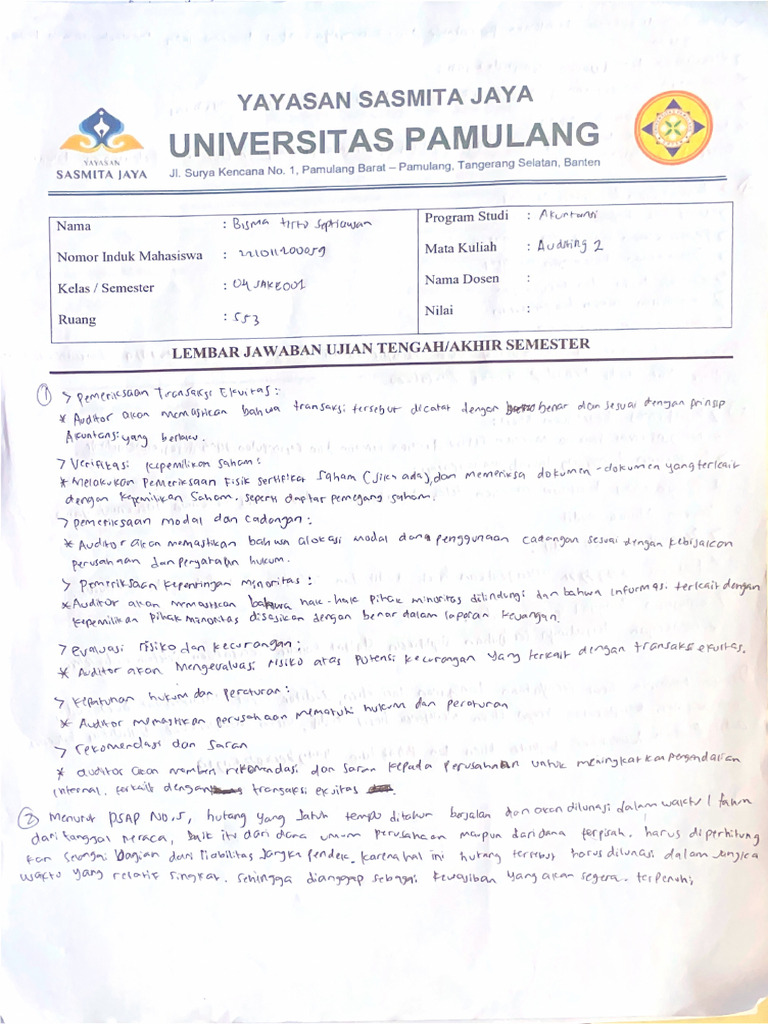 YAYASAN SASMITA JAYA
UNIVERSITAS PAMULANG
Jl. Surya Kencana No. 1, Pamulang Barat – Pamulang, Tangerang Selatan, Banten
YAYASAN
SASMITA JAYA
Nama : Bisma Tirto Septiawan
Nomor Induk Mahasiswa : 221011200059
Kelas / Semester : 04SAKE001
Ruang : 553
Program Studi : Akuntansi
Mata Kuliah : Auditing 2
Nama Dosen :
Nilai :
LEMBAR JAWABAN UJIAN TENGAH/AKHIR SEMESTER
① > Pemeriksaan Transaksi Ekuitas:
* Auditor akan memastikan bahwa transaksi tersebut dicatat dengan benar dan sesuai dengan prinsip
Akuntansi yang berlaku.
> Verifikasi kepemilikan saham:
* Melakukan Pemeriksaan Fisik sertifikat Saham (jika ada), dan memeriksa dokumen-dokumen yang terkait
dengan kepemilikan Saham. seperti daftar pemegang saham.
> pemeriksaan modal dan cadangan:
* Auditor akan memastikan bahwa alokasi modal dan penggunaan cadangan sesuai dengan kebijakan
perusahaan dan persyaratan hukum.
> Pemeriksaan kepentingan minoritas:
* Auditor akan memastikan bahwa hak-hak pihak minoritas dilindungi dan bahwa informasi terkait dengan
kepemilikan pihak disajikan dengan benar dalam laporan keuangan.
> evaluasi risiko dan kecurangan:
* Auditor akan Mengevaluasi risiko atas potensi kecurangan yang terkait dengan transaksi ekuitas.
> kepatuhan hukum dan peraturan:
* Auditor memastikan perusahaan mematuhi hukum dan peraturan
> rekomendasi dan saran
* auditor akan memberi rekomendasi dan saran kepada perusahaan untuk meningkatkan pengendalian
internal. terkait dengan transaksi ekuitas
② Menurut PSAP NO.5, hutang yang jatuh tempo ditahun berjalan dan akan dilunasi dalam waktu 1 tahun
dari tanggal neraca, baik itu dari dana umum perusahaan maupun dari dana terpisah. harus diperhitung
kan sebagai bagian dari liabilitas jangka pendek. karena hal ini hutang tersebut harus dilunasi dalam jangka
waktu yang relatif singkat. sehingga dianggap sebagai kewajiban yang akan segera. terpenuhi